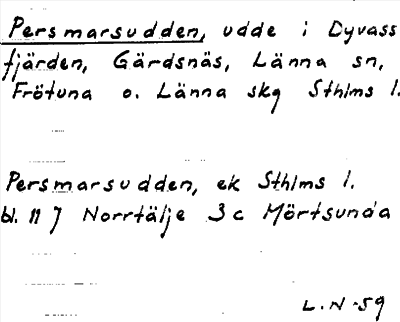 Persmarsudden, udde i Dyvass
fjärden, Gärdsnäs, Länna sn,
Frötuna o. Länna skg Sthlms l.
Persmarsudden, ek Sthlms l.
bl. 11 J Norrtälje 3c Mörtsunda
L.N-59